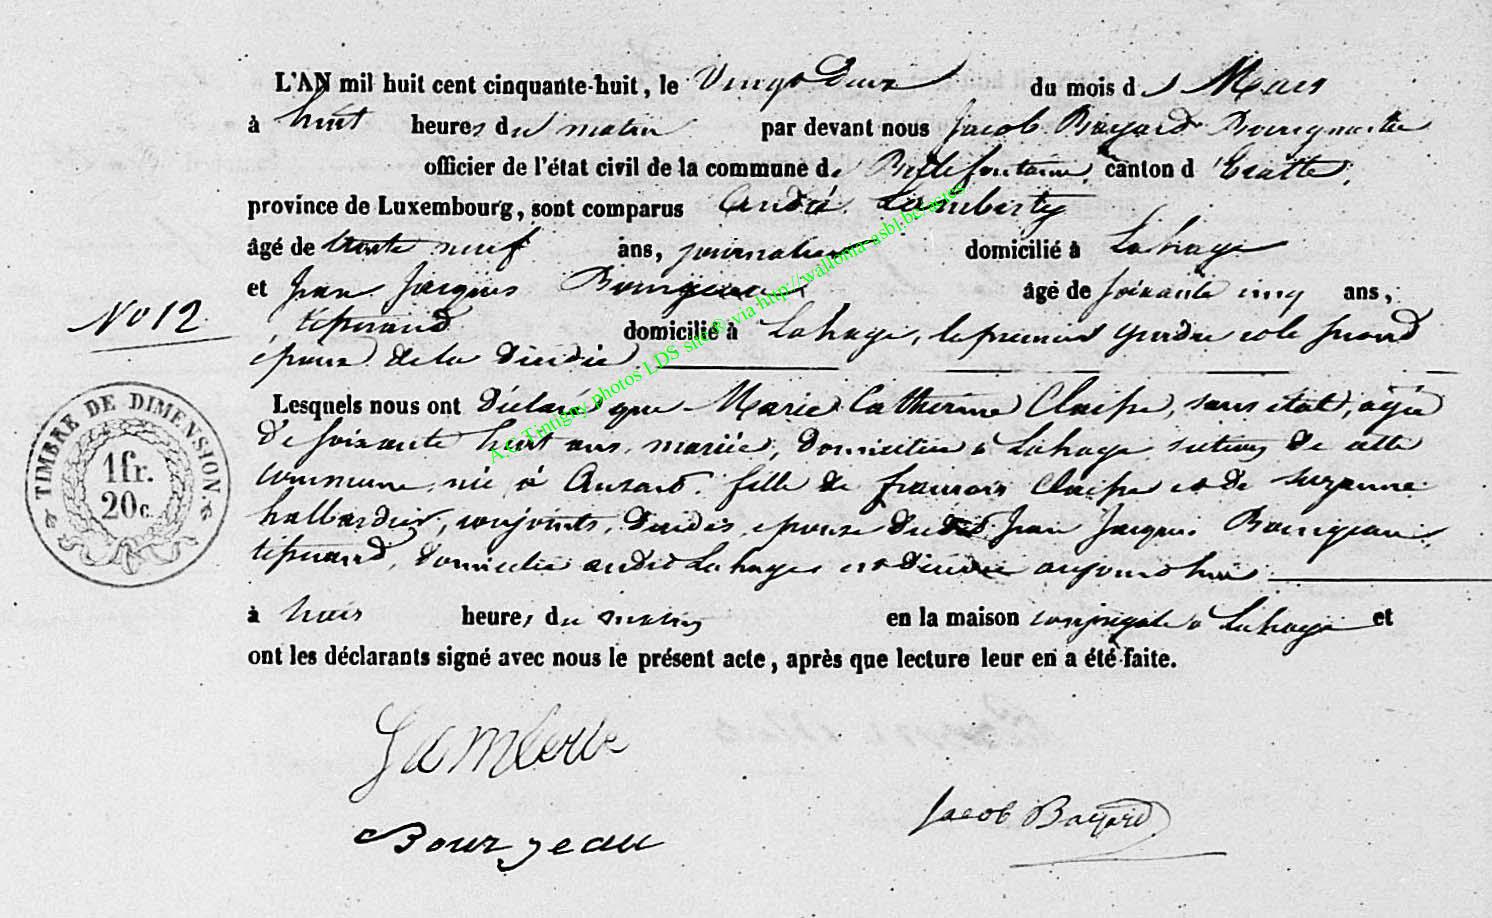 L'AN mil huit cent cinquante-huit, le Vingt Deux du mois de Mars
à huit heures du matin par devant nous Jacob Bayard Bourgmestre
officier de l'état civil de la commune de Bellefontaine, canton d'Etalle,
province de Luxembourg, sont comparus André Lamberty
âgé de trente neuf ans, journalier domicilié à Lahage
et Jean Jacques Bourgeau âgé de soixante cinq ans,
No 12
tisserand domicilié à Lahage, le premier gendre et le second
époux de la décédée.
Lesquels nous ont déclaré que Marie Catherine Claisse, sans état, agée
de soixante huit ans, mariée, domiciliée à Lahage section de cette
commune, née à Ansart, fille de francois Claisse et de suzanne
hallbardier, conjoints, décédés, epouse dudit Jean Jacques Bourgeau,
tisserand, domicilié audit Lahage est décédée aujourd'hui
à trois heures du matin en la maison conjugale à Lahage et
ont les déclarants signé avec nous le présent acte, après que lecture leur en a été faite.
TIMBRE DE DIMENSION.
1 fr.
20 c.
A.C Tintigny photos LDS site ® via http://wallonia-asbl.be/actes
Lamberte
Jacob Bayard
Bourgeau